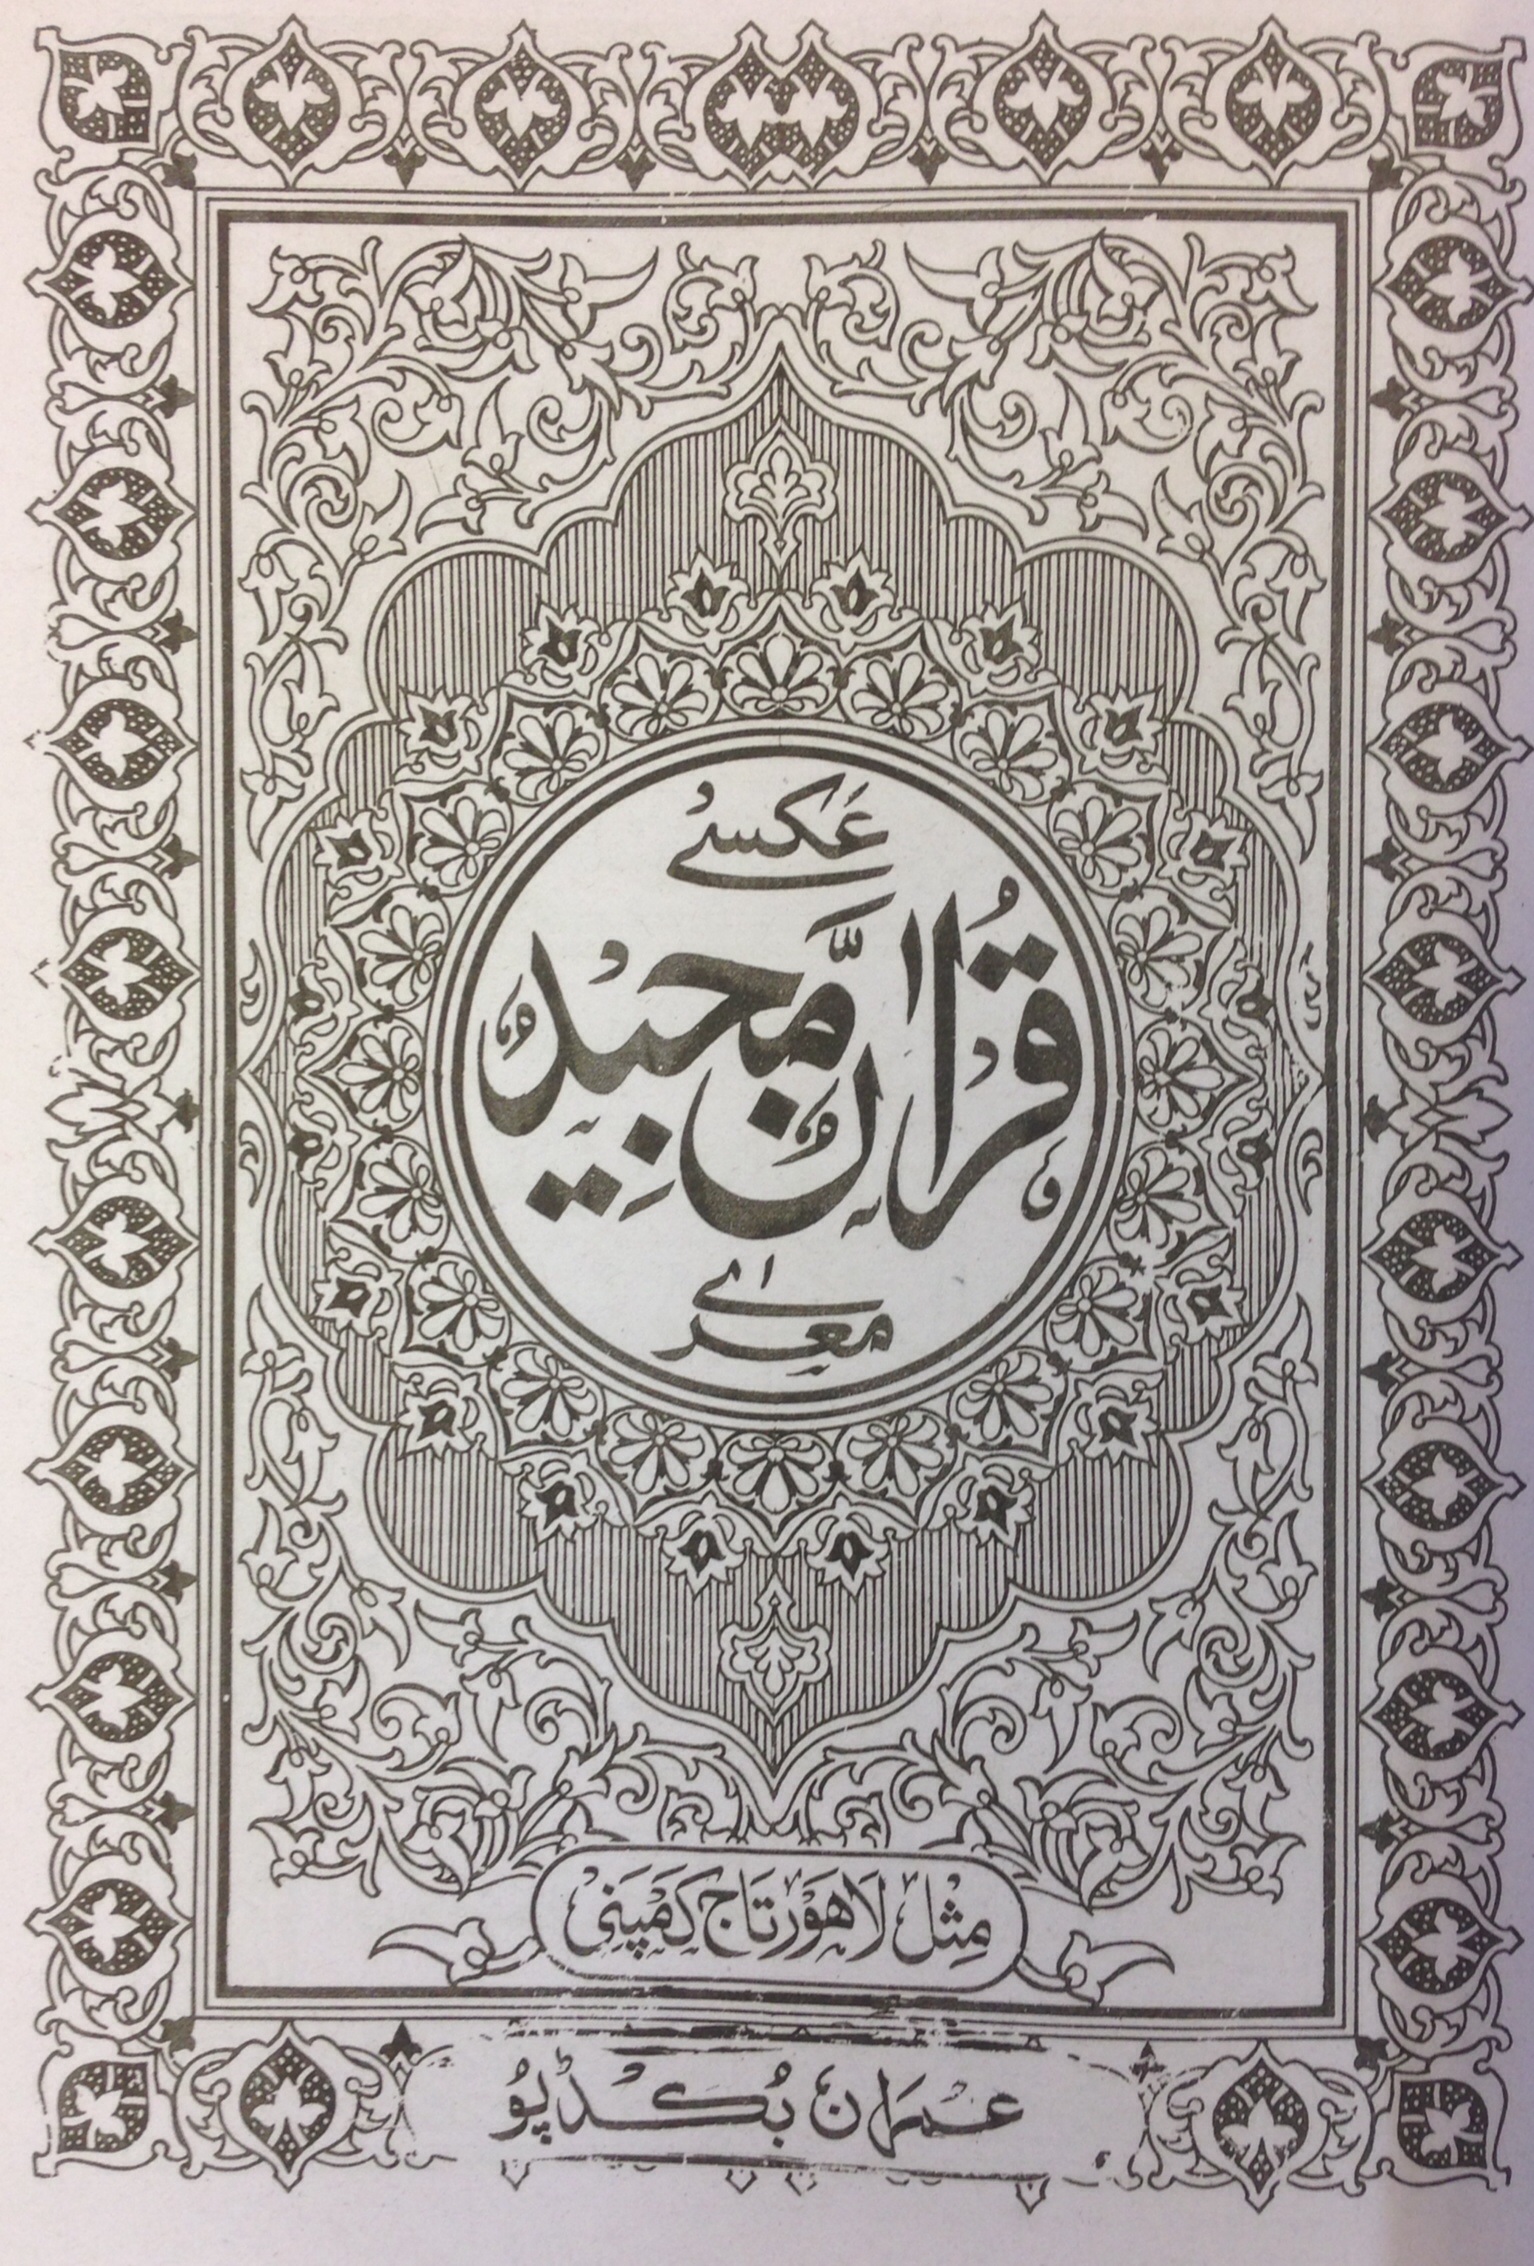 عَکسی
قُرْاٰن مَّجِیْدٌ
معرٰے
مِثْل لَاهَوْر تَاج کَمْپَنِیْ
عمران بُکڈپُو